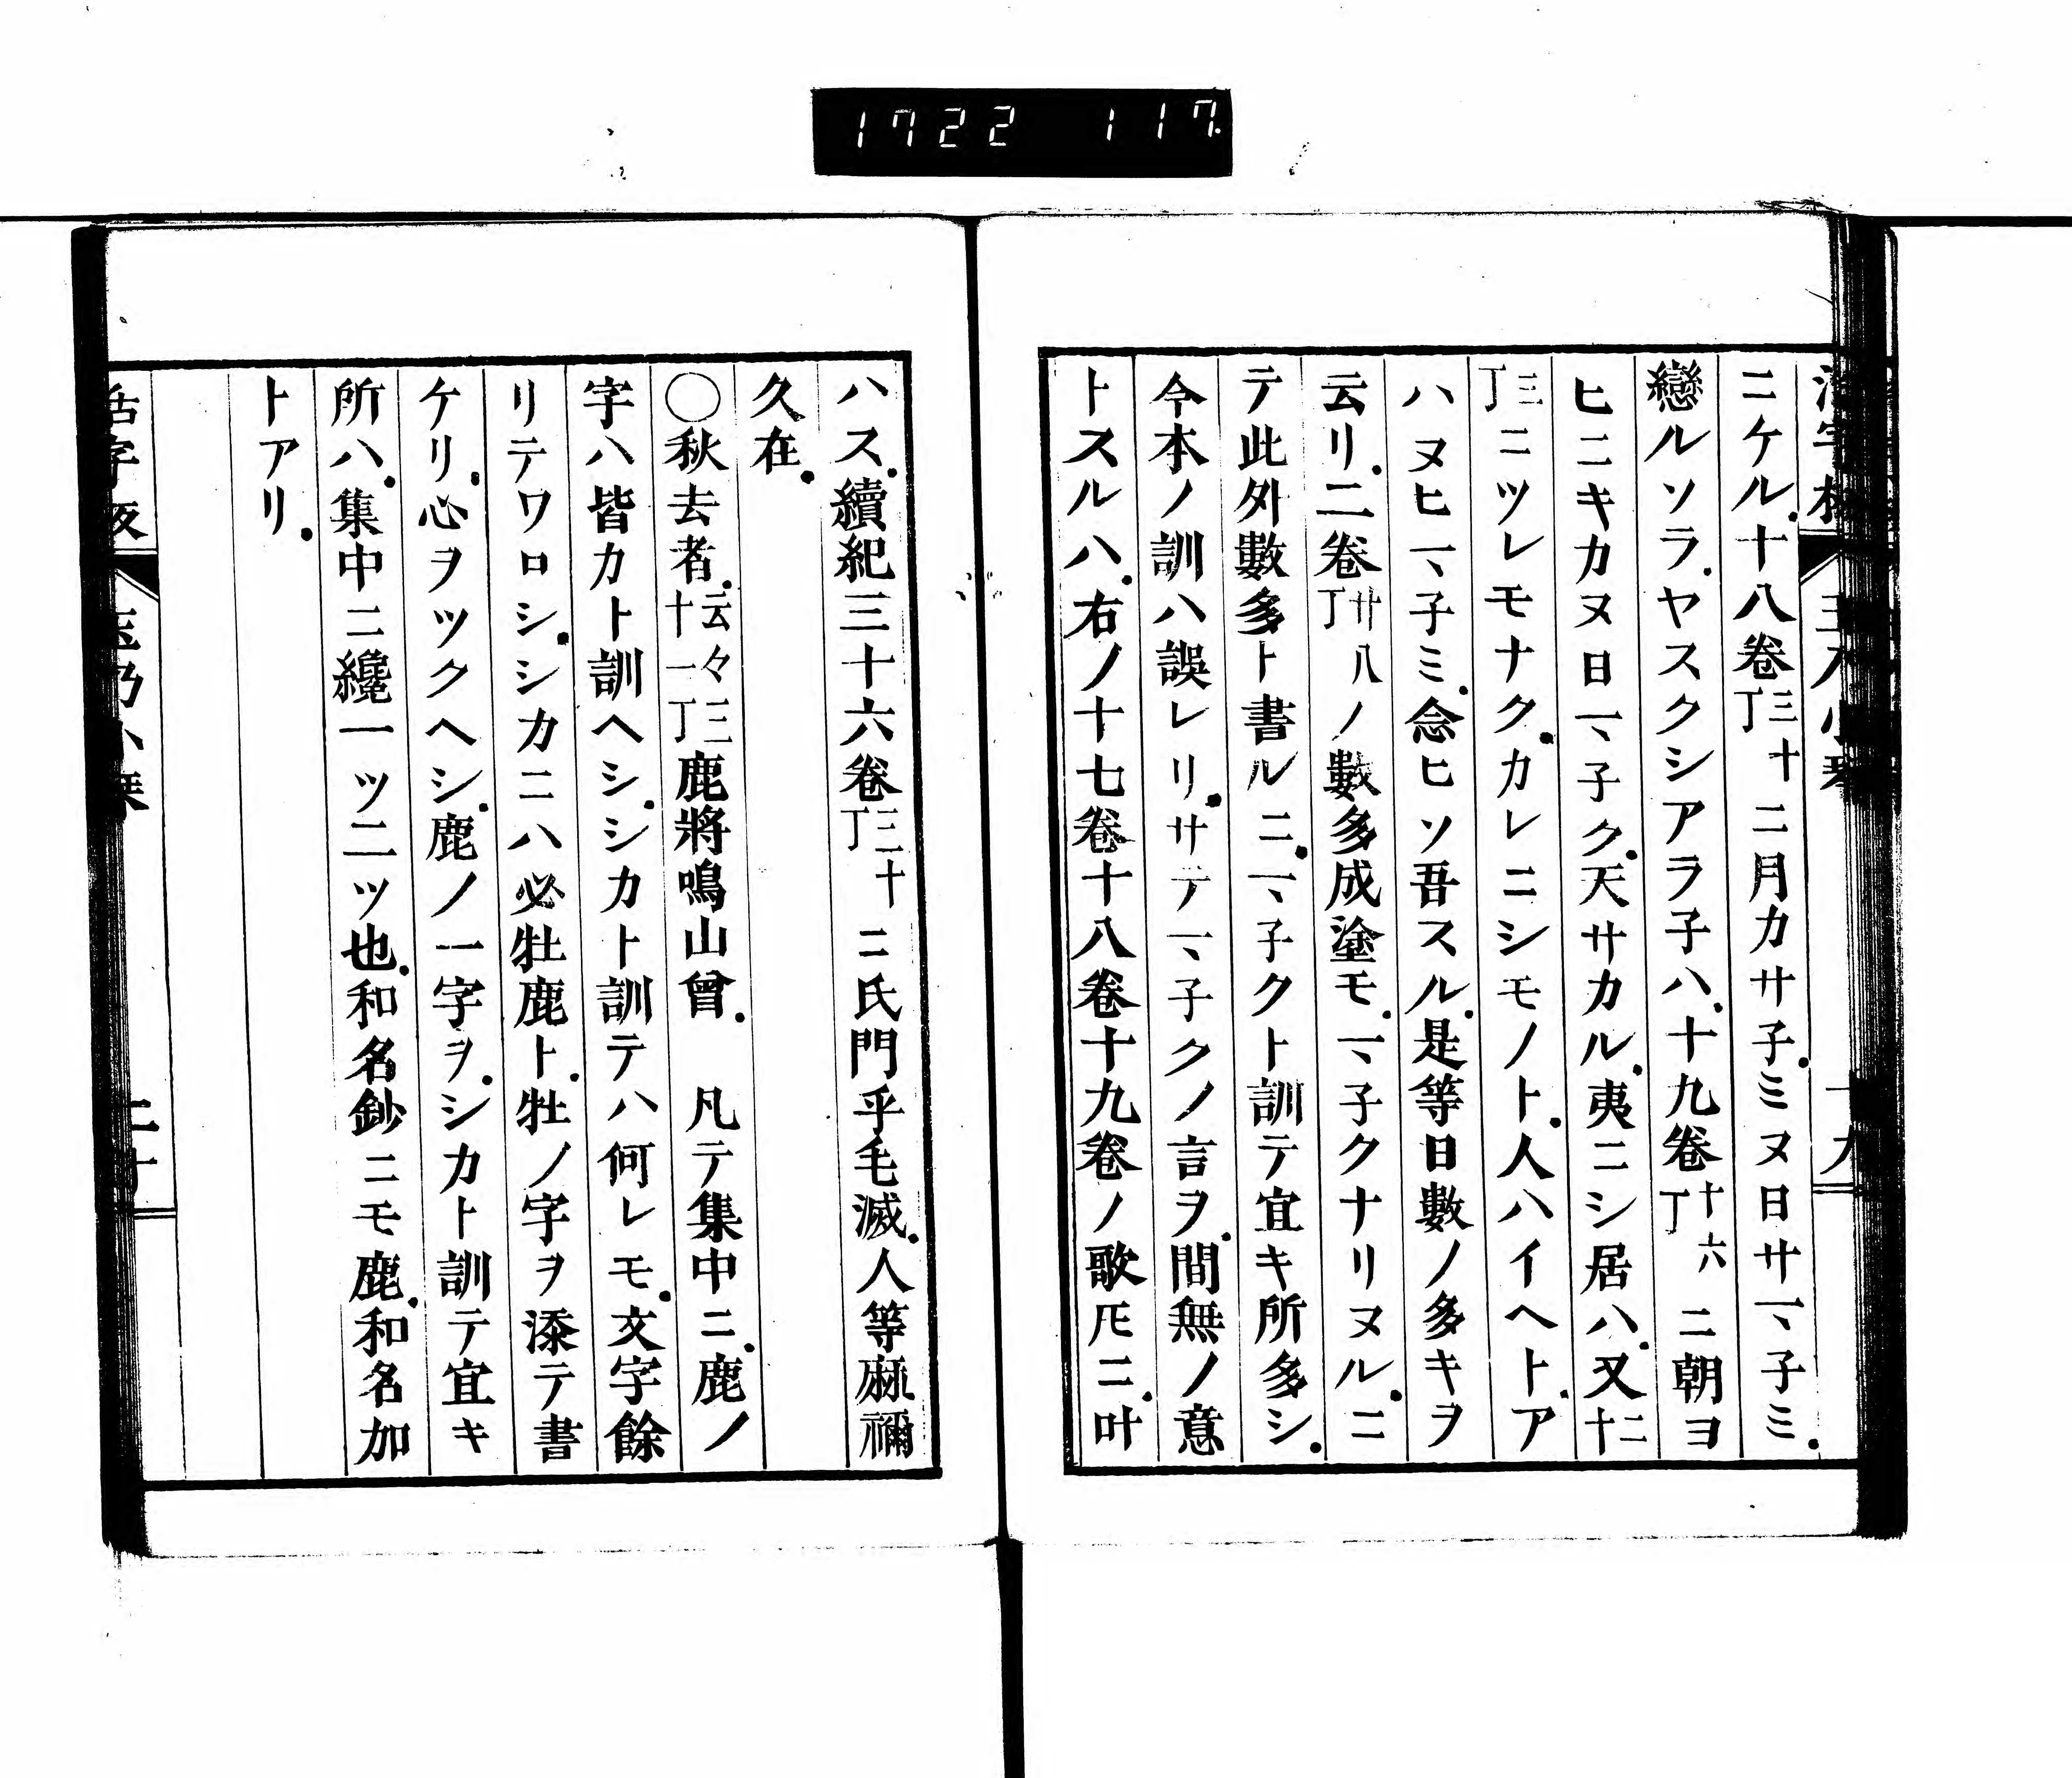 1722 117.
ニケル.十八卷三十丁ニ月カサ子.ミヌ日サマ子ミ.
戀ルソラ.ヤスクシアラ子ハ.十九卷十六丁ニ朝ヨ
ヒニキカヌ日マ子ク.天サカル.夷ニシ居ハ.又二十
三丁ニツレモナク.カレニシモノト.人ハイヘト.ア
ハヌヒマ子ミ.念ヒソ吾スル.是等日數ノ多キヲ
云リ.二卷廿八丁ノ數多成塗モ.マ子クナリヌル.ニ
テ此外數多ト書ルニ.マ子クト訓テ宜キ所多シ.
今本ノ訓ハ誤レリ.サテマ子クノ言ヲ.間無ノ意
トスルハ.右ノ十七卷十八卷十九卷ノ歌𪜈ニ.叶
ハス.續紀三十六卷三十丁ニ氏門乎毛滅.人等麻禰
久在.
○秋去者.云々十一三丁鹿將鳴山曾.　凡テ集中ニ.鹿ノ
字ハ皆カト訓ヘシ.シカト訓テハ何レモ.文字餘
リテワロシ.シカニハ必牡鹿ト.牡ノ字ヲ添テ書
ケリ.心ヲツクヘシ.鹿ノ一字ヲ.シカト訓テ宜キ
所ハ.集中ニ纔一ツ二ツ也.和名鈔ニモ鹿.和名加
トアリ.
活字板
二十